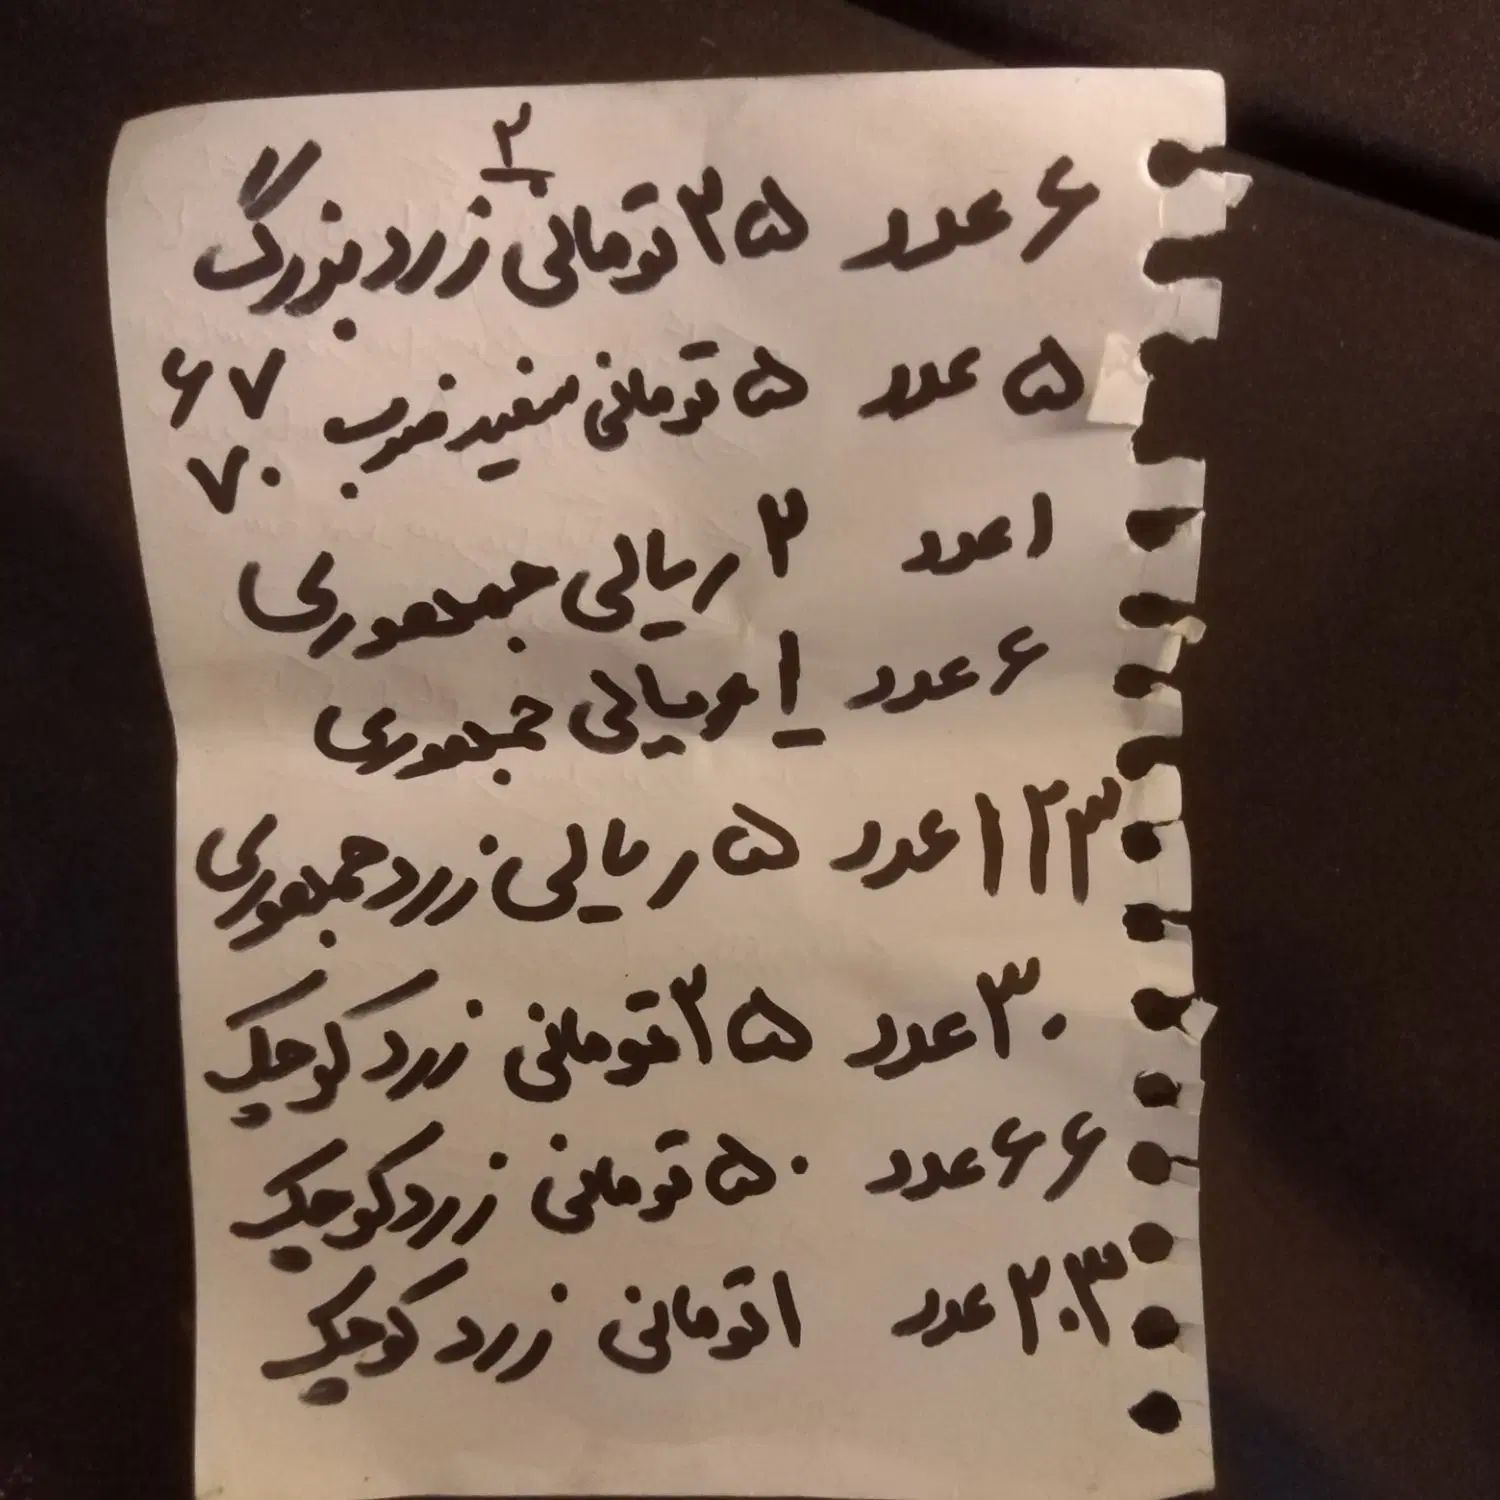 ۲
۶ عدد ۲۵ تومانی زرد بزرگ
۵ عدد ۵ تومانی سفید ضرب ۶۷
۷۰
۱ عدد ۲ ریالی جمهوری
۶ عدد ۱ ریالی جمهوری
۱۲۳ عدد ۵ ریالی زرد جمهوری
۳۰ عدد ۲۵ تومانی زرد کوچک
۶۶ عدد ۵۰ تومانی زرد کوچک
۲۰۳ عدد ۱ تومانی زرد کوچک